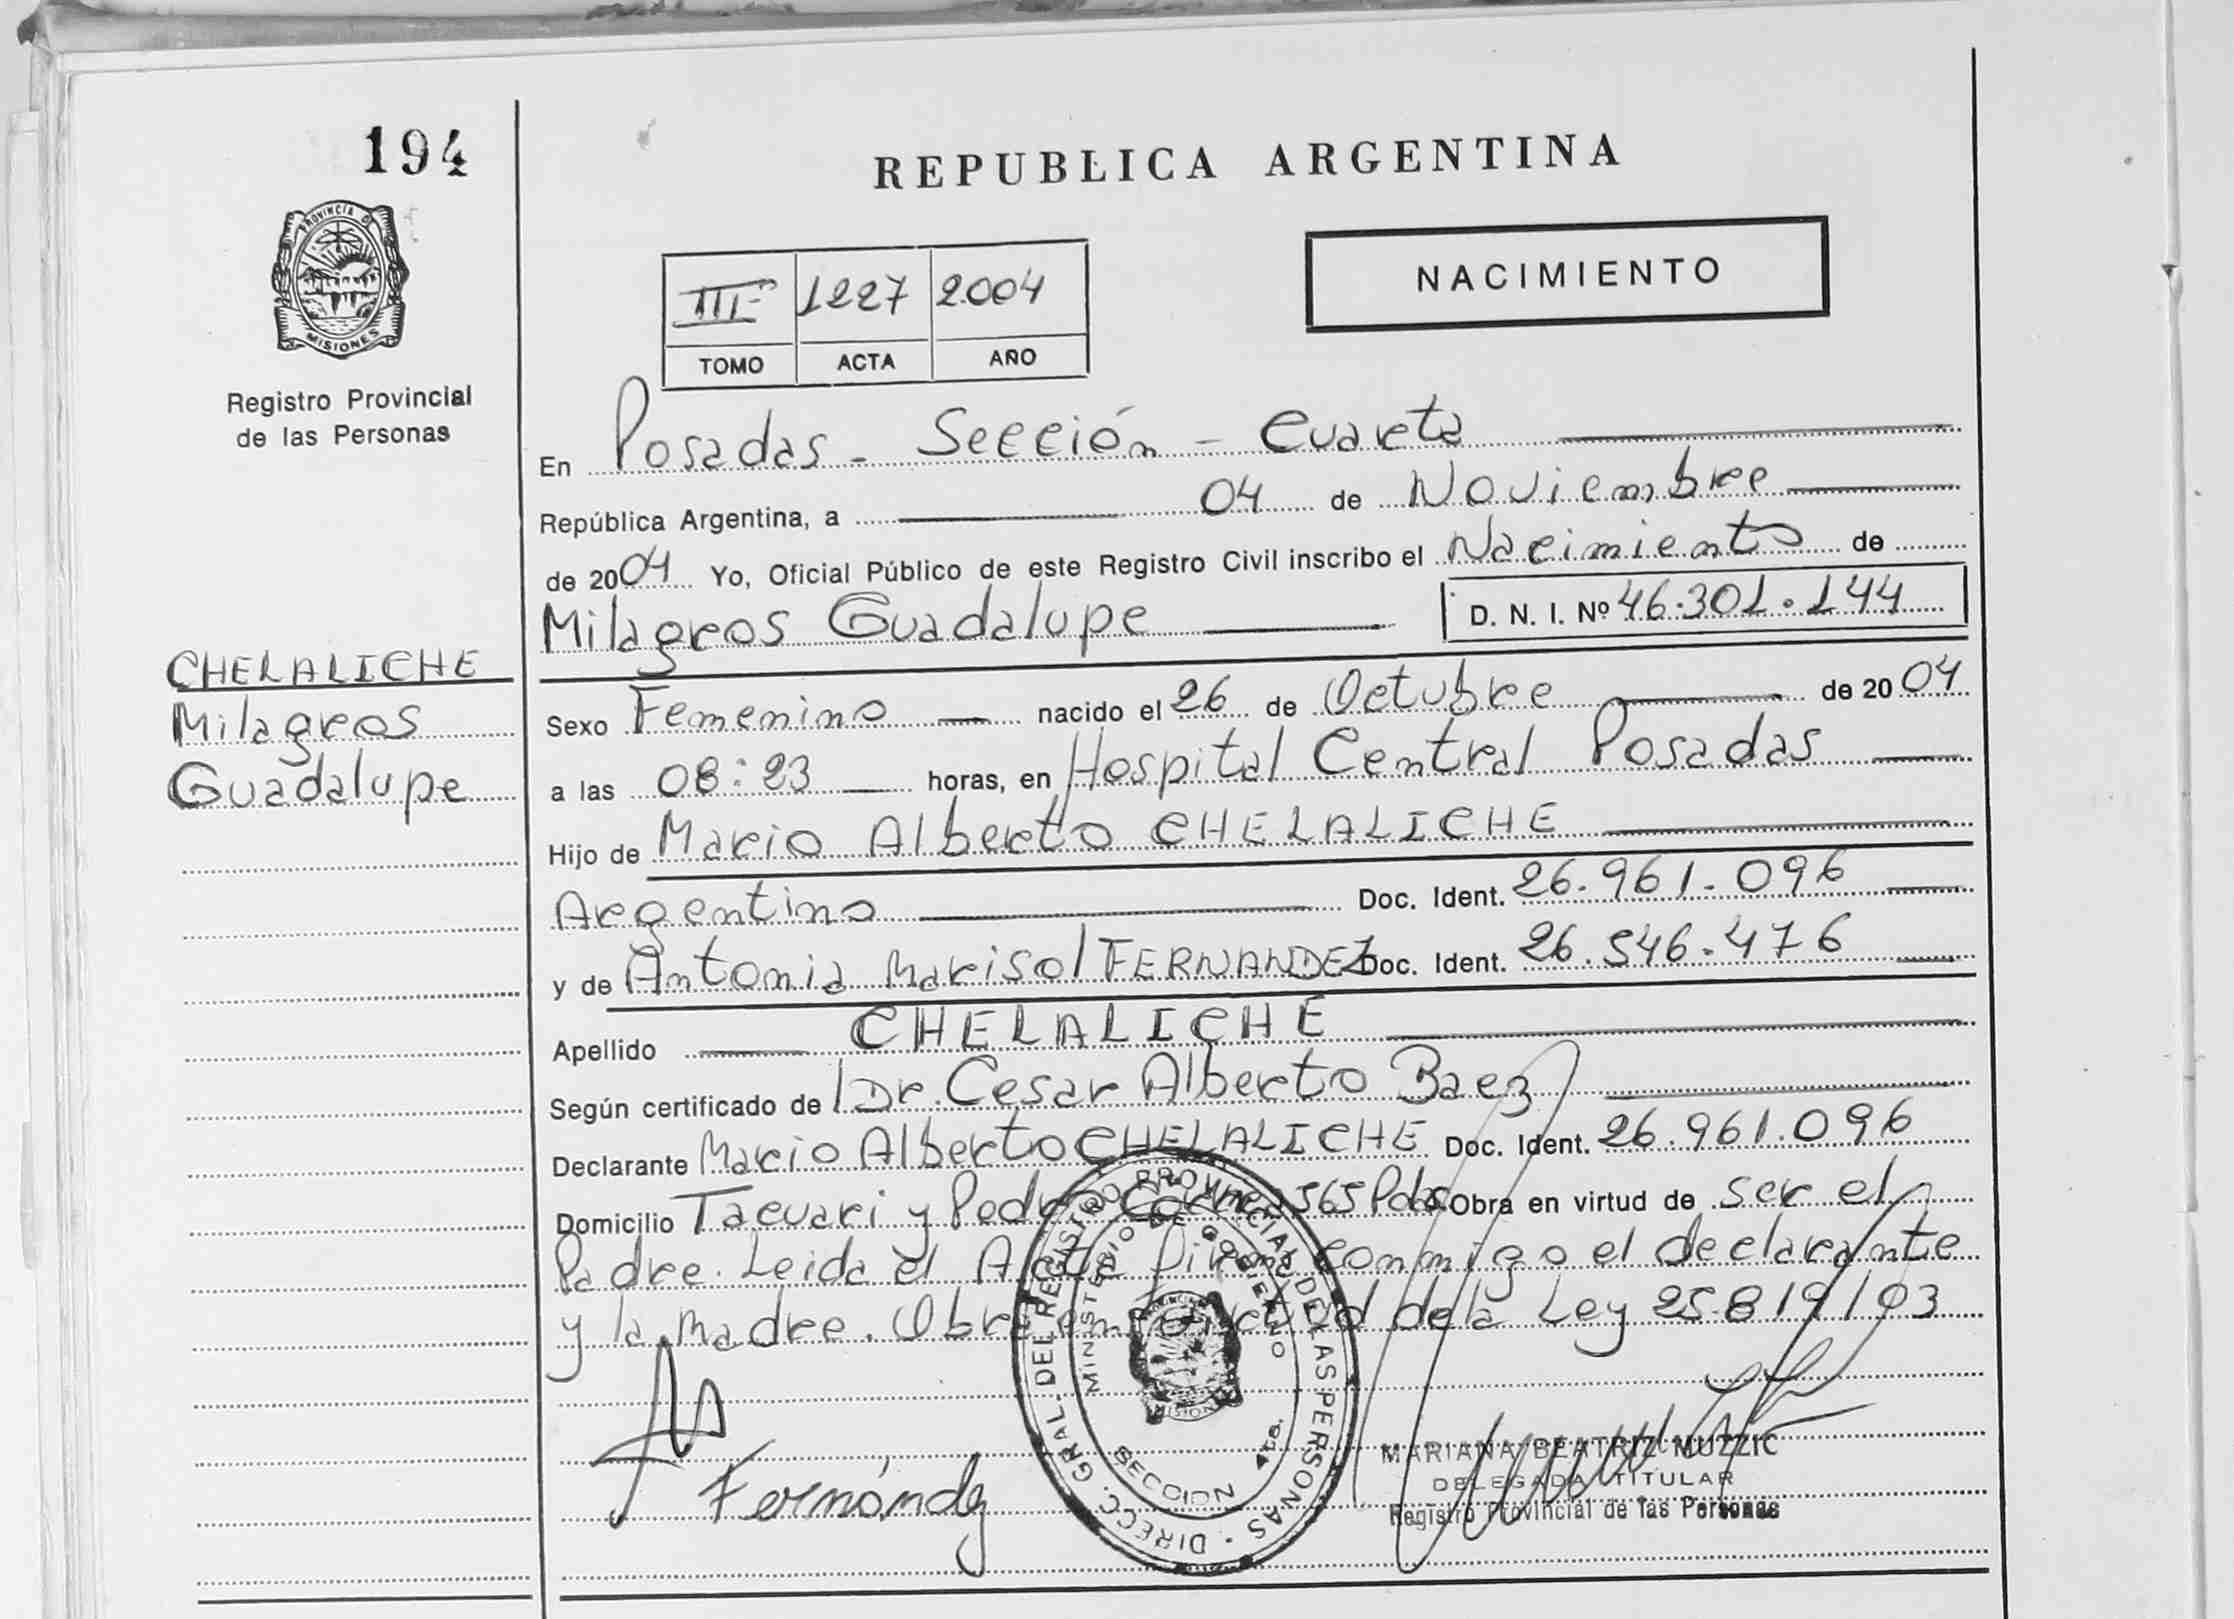 194
REPUBLICA ARGENTINA
PROVINCIA D
MISIONES
Registro Provincial
de las Personas
III 1227 2004
TOMO ACTA AÑO
NACIMIENTO
En Posadas - Sección - Cuarta
República Argentina, a 04 de Noviembre
de 2004 Yo, Oficial Público de este Registro Civil inscribo el Nacimiento de
Milagros Guadalupe D. N. I. Nº 46.301.144
CHELALICHE
Milagros
Guadalupe
Sexo Femenino nacido el 26 de Octubre de 2004
a las 08:23 horas, en Hospital Central Posadas
Hijo de Mario Alberto CHELALICHE
Argentino Doc. Ident. 26.961.096
y de Antonia Marisol FERNANDEZ Doc. Ident. 26.546.476
Apellido CHELALICHE
Según certificado de Dr. Cesar Alberto Baez
Declarante Mario Alberto CHELALICHE Doc. Ident. 26.961.096
Domicilio Tacuari y Pedro 565 Pdas Obra en virtud de ser el
Padre. Leida el Acta Firma conmigo el declarante
y la madre. Obra en virtud de la Ley 25.819/03
Fernández
DIRECC. GRAL. DEL REGISTRO PROVINCIAL DE LAS PERSONAS
MINISTERIO DE GOBIERNO
SECCION 4ta.
MARIANA BEATRIZ MUZZIC
DELEGADA TITULAR
Registro Provincial de las Personas